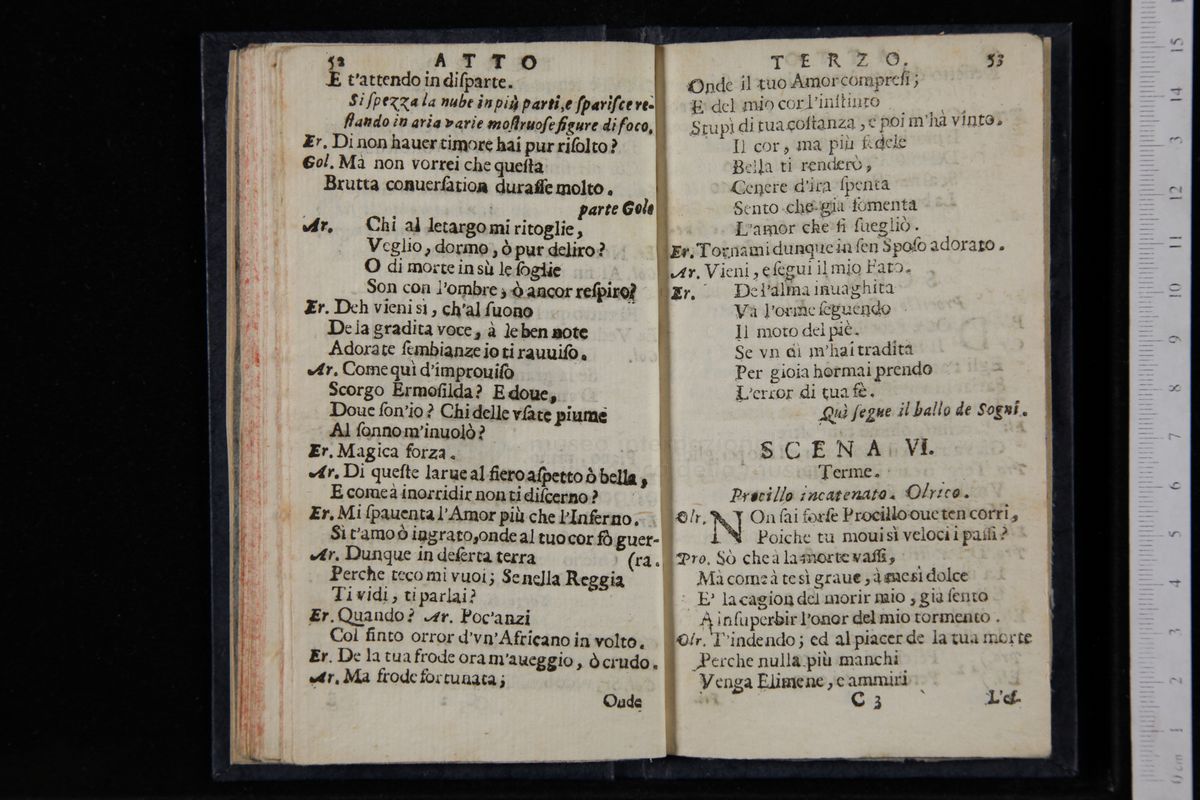 52 ATTO
E t'attendo in disparte.
Si spezza la nube in più parti, e sparisce re-
stando in aria varie mostruose figure di foco.
Er. Di non hauer timore hai pur risolto?
Gol. Ma non vorrei che questa
Brutta conuersation durasse molto.
parte Golo
Ar. Chi al letargo mi ritoglie,
Veglio, dormo, ò pur deliro?
O di morte in sù le soglie
Son con l'ombre, ò ancor respiro?
Er. Deh vieni sì, ch'al suono
De la gradita voce, a le ben note
Adorate sembianze io ti rauuiso.
Ar. Come quì d'improuiso
Scorgo Ermosilda? E doue,
Doue son'io? Chi delle vsate piume
Al sonno m'inuolò?
Er. Magica forza.
Ar. Di queste larue al fiero aspetto ò bella,
E come à inorridir non ti discerno?
Er. Mi spauenta l'Amor più che l'Inferno.
Si t'amo ò ingrato, onde al tuo cor fò guer-
Ar. Dunque in deserta terra (ra.
Perche teco mi vuoi; Se nella Reggia
Ti vidi, ti parlai?
Er. Quando? Ar. Poc'anzi
Col finto orror d'vn'Africano in volto.
Er. De la tua frode ora m'aueggio, ò crudo.
Ar. Ma frode fortunata;
Onde
TERZO. 53
Onde il tuo Amor compresi;
E del mio cor l'instinto
Stupì di tua costanza, e poi m'hà vinto.
Il cor, ma più fedele
Bella ti renderò,
Cenere d'ira spenta
Sento che già fomenta
L'amor che si suegliò.
Er. Tornami dunque in sen Sposo adorato.
Ar. Vieni, e segui il mio Fato.
Er. De l'alma inuaghita
Va l'orme seguendo
Il moto del piè.
Se vn dì m'hai tradita
Per gioia hormai prendo
L'error di tua fè.
Quì segue il ballo de Sogni.
SCENA VI.
Terme.
Procillo incatenato. Olrico.
Olr. NOn sai forse Procillo oue ten corri,
Poiche tu moui sì veloci i passi?
Pro. Sò che à la morte vassi,
Mà come à te sì graue, à me sì dolce
E' la cagion del morir mio, già sento
A insuperbir l'onor del mio tormento.
Olr. T'indendo; ed al piacer de la tua morte
Perche nulla più manchi
Venga Elimene, e ammiri
C 3 L'es-